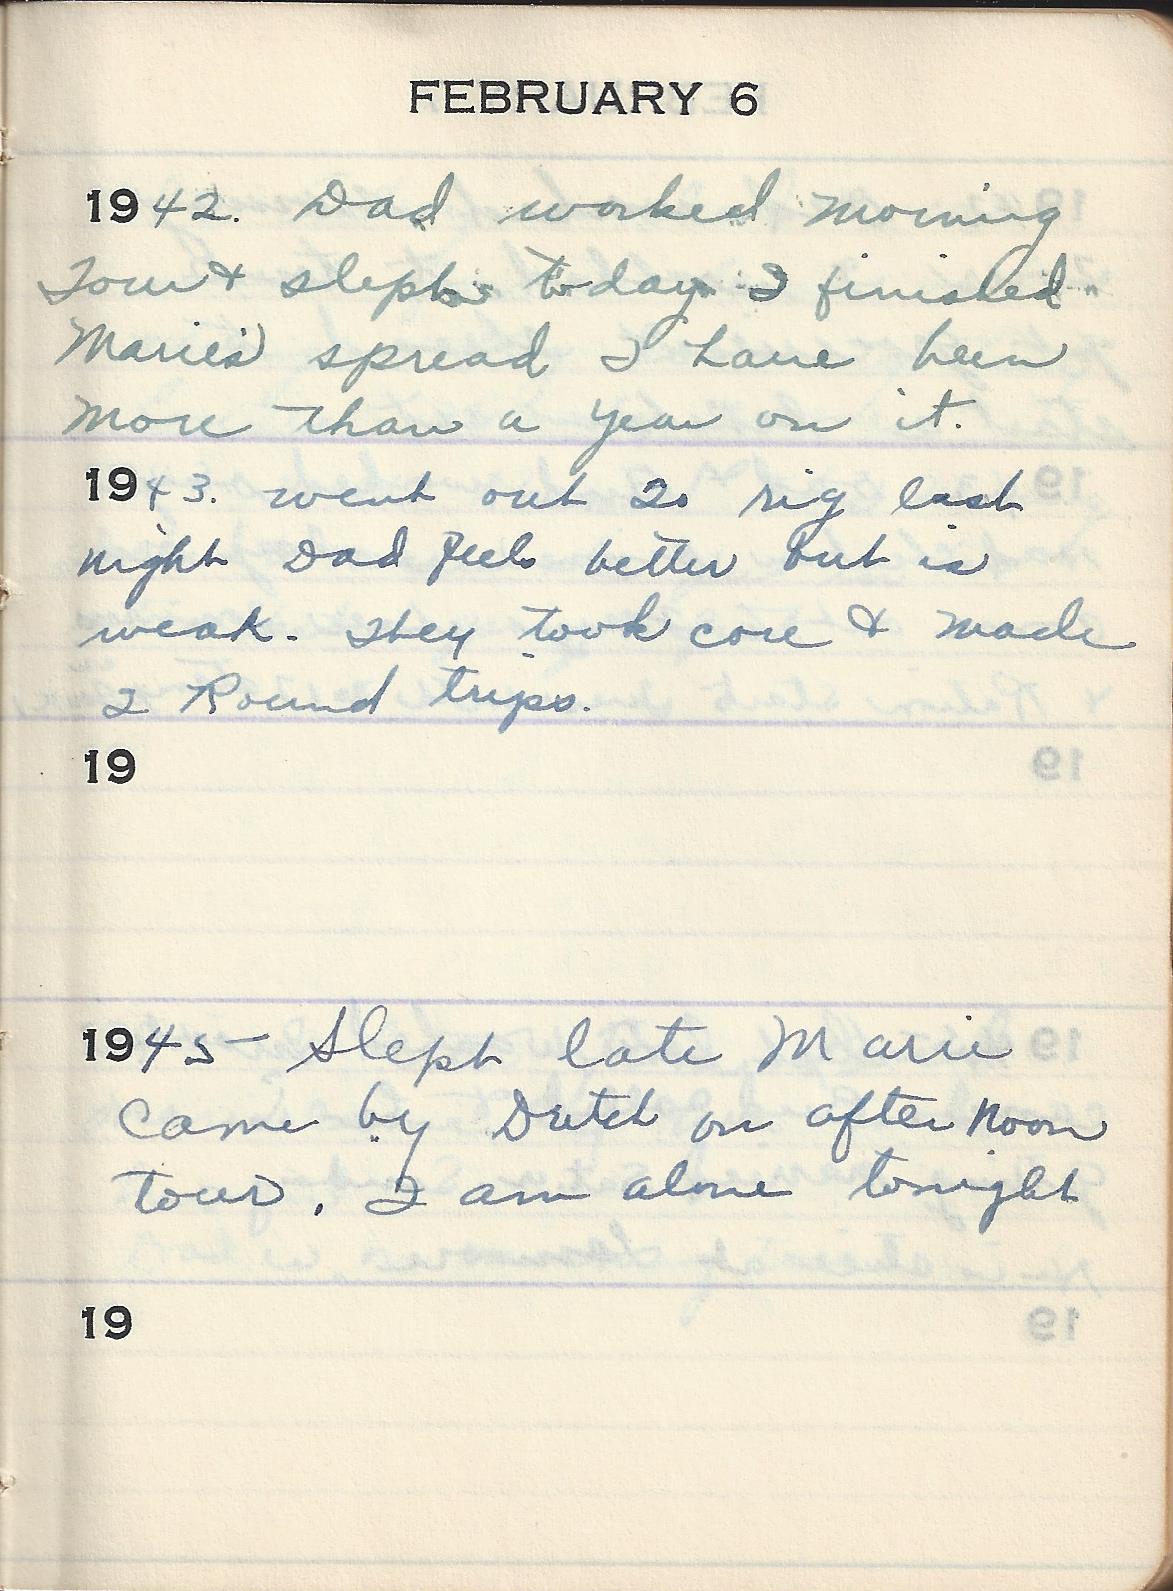 FEBRUARY 6
1942. Dad worked morning
Tour & slept today I finished
Marie's spread I have been
more than a year on it.
1943. went out to rig last
night Dad feels better but is
weak. They took core & made
2 Round trips.
19
1945- Slept late Marie
came by Dutch on afternoon
tour. I am alone tonight
19